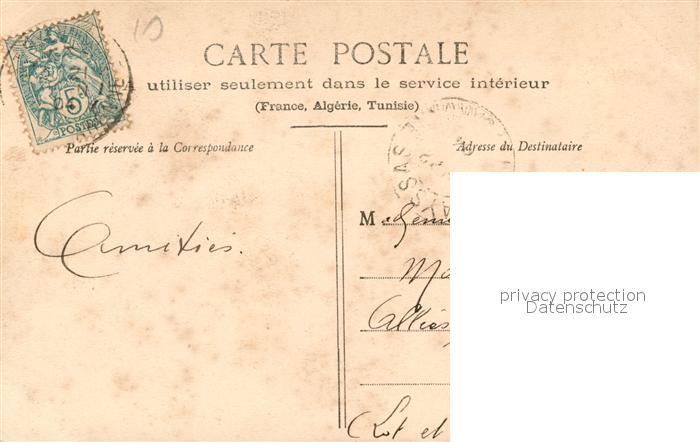 CARTE POSTALE
A utiliser seulement dans le service intérieur
(France, Algérie, Tunisie)
Partie réservée à la Correspondance
Adresse du Destinataire
5c
POSTES
Amitiés.
M
Lot et
privacy protection
Datenschutz